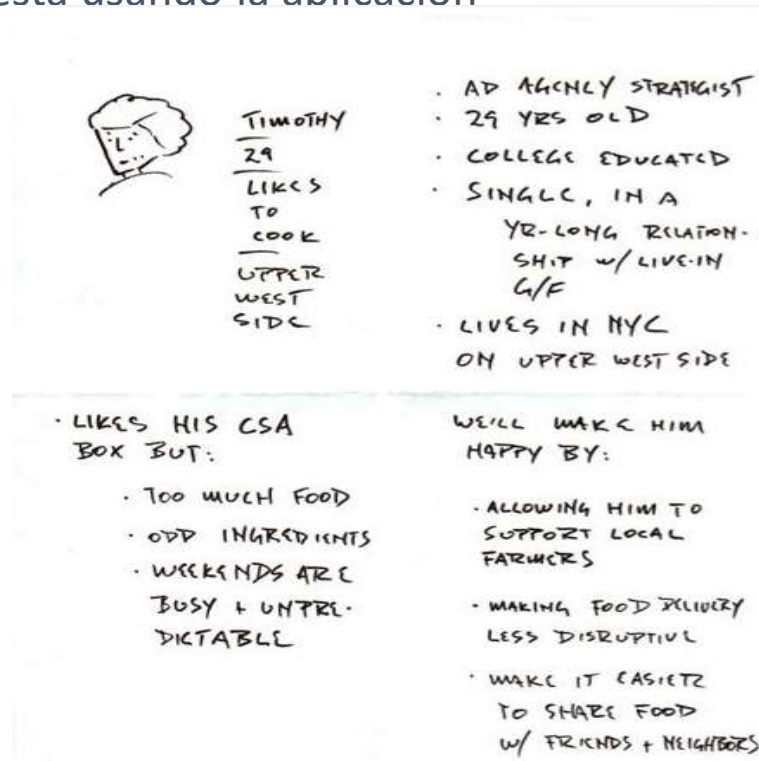 está usando la aplicación
TIMOTHY
29
LIKES
TO
COOK
UPPER
WEST
SIDE
· AD AGENCY STRATEGIST
· 29 YRS OLD
· COLLEGE EDUCATED
· SINGLE, IN A
YR-LONG RELATION-
SHIP W/ LIVE-IN
G/F
· LIVES IN NYC
ON UPPER WEST SIDE
· LIKES HIS CSA
BOX BUT:
· TOO MUCH FOOD
· ODD INGREDIENTS
· WEEKENDS ARE
BUSY + UNPRE-
DICTABLE
WE'LL MAKE HIM
HAPPY BY:
· ALLOWING HIM TO
SUPPORT LOCAL
FARMERS
· MAKING FOOD DELIVERY
LESS DISRUPTIVE
· MAKE IT EASIER
TO SHARE FOOD
W/ FRIENDS + NEIGHBORS